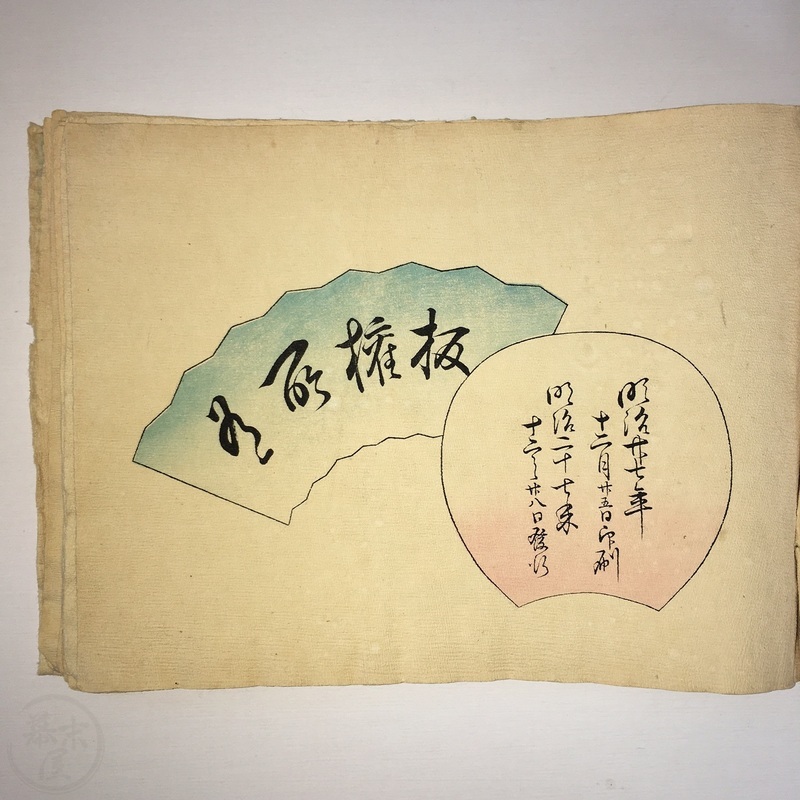 板権所有
明治廿七年
十二月廿五日印刷
明治二十七年
十二月廿八日發行